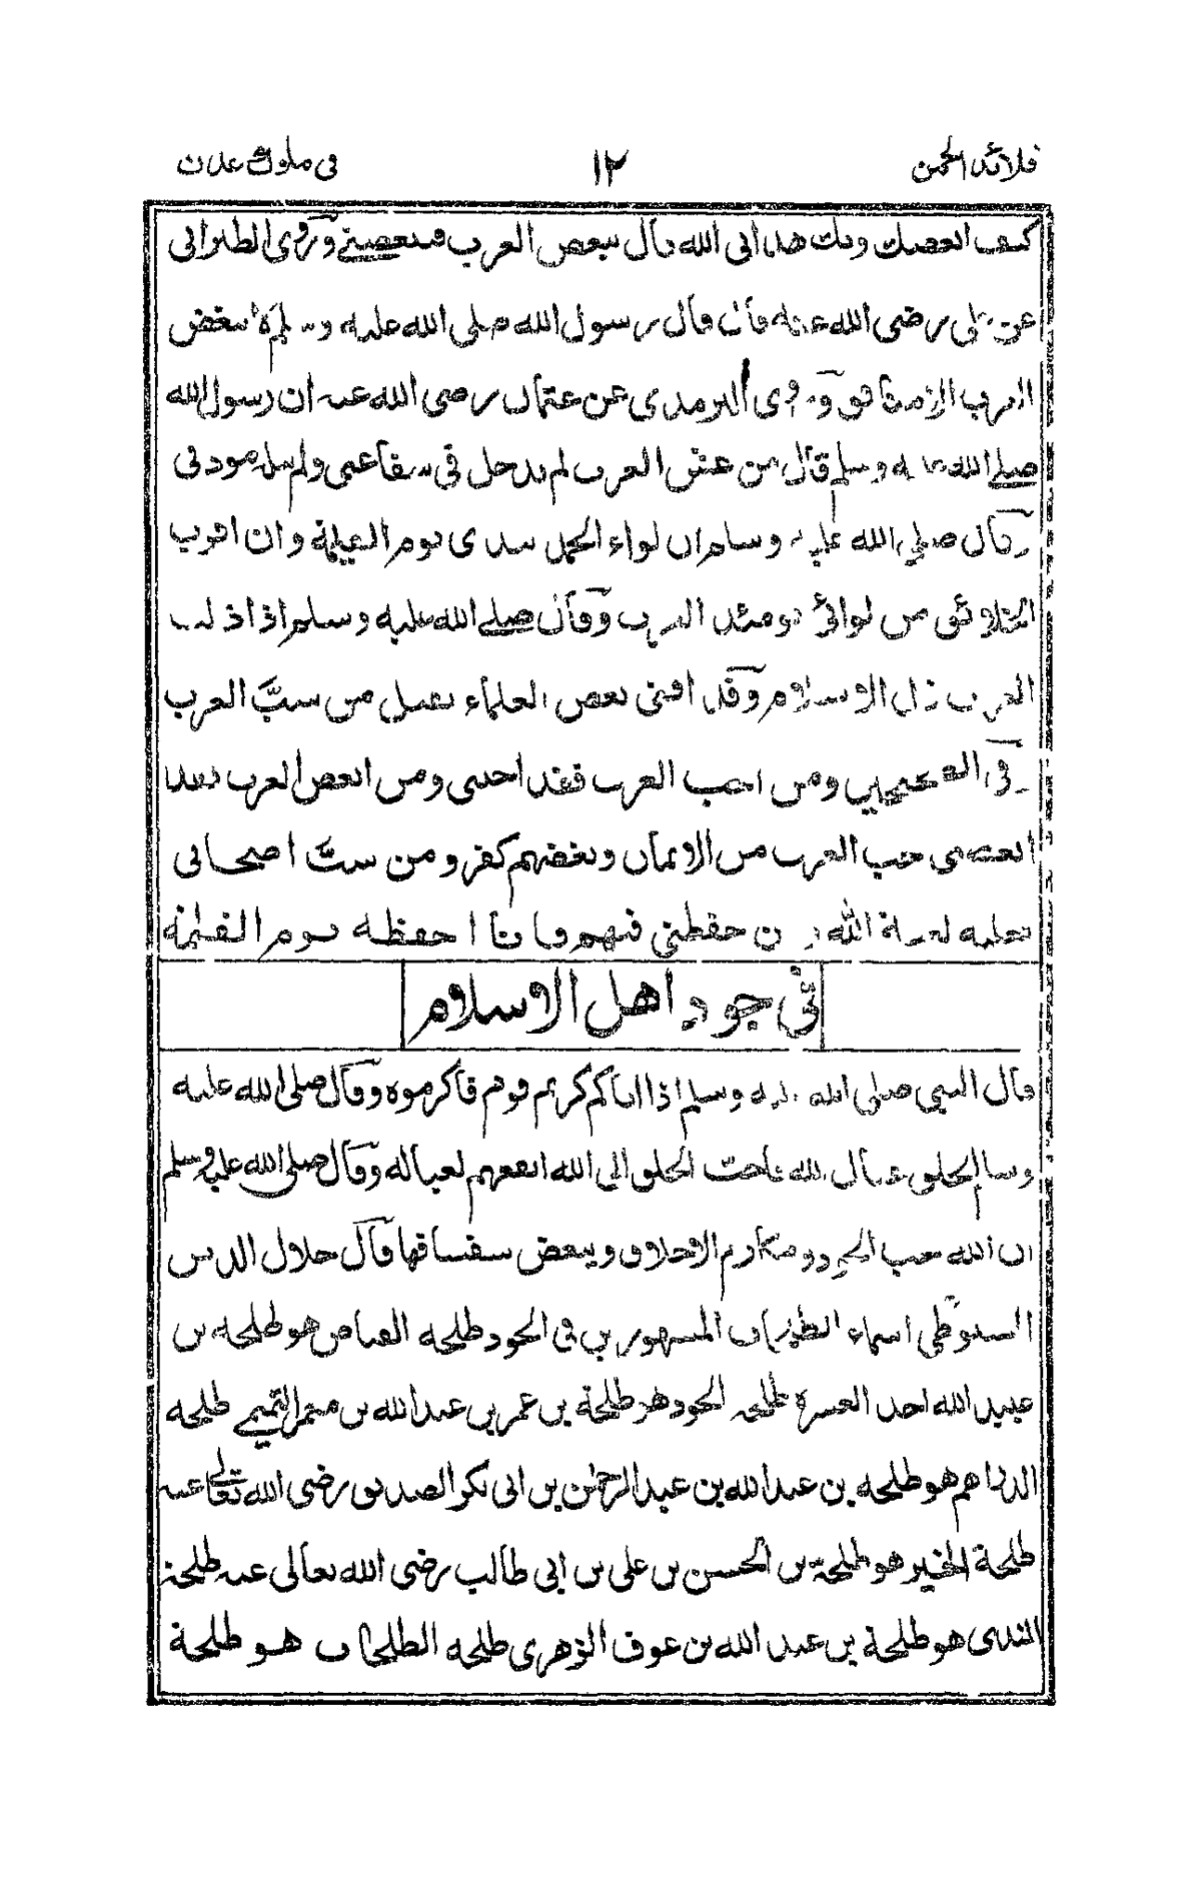 قلائد الجمن ١٢ في ملوك عدن
كيف ابغضك وبك هدانى الله قال تبغض العرب فتبغضنى وروى الطبرانى
عن على رضى الله عنه قال قال رسول الله صلى الله عليه وسلم لا يبغض
العرب الا منافق وروى الترمذى عن عثمان رضى الله عنه ان رسول الله
صلى الله عليه وسلم قال من غش العرب لم يدخل فى شفاعتى ولم تنله مودتى
وقال صلى الله عليه وسلم ان لواء الحمد بيدى يوم القيمة وان اقرب
الخلائق من لوائى يومئذ العرب وقال صلى الله عليه وسلم اذا ذلت
العرب ذل الاسلام وقد افتى بعض العلماء بقتل من سبّ العرب
وفى الصحيحين ومن احب العرب فقد احبنى ومن ابغض العرب فقد
ابغضنى حب العرب من الايمان وبغضهم كفر ومن سبّ اصحابى
فعليه لعنة الله ومن حفظنى فيهم فانا احفظه يوم القيمة
فى جود اهل الاسلام
قال النبى صلى الله عليه وسلم اذا اتاكم كريم قوم فاكرموه وقال صلى الله عليه
وسلم الخلق عيال الله فاحب الخلق الى الله انفعهم لعياله وقال صلى الله عليه وسلم
ان الله يحب الجود ومكارم الاخلاق ويبغض سفسافها قال جلال الدين
السيوطى اسماء الطلحات المشهورين فى الجود طلحه الفياض هو طلحه بن
عبيد الله احد العشرة طلحة الجود هو طلحة بن عمر بن عبد الله بن معمر التميمى طلحه
الدراهم هو طلحه بن عبد الله بن عبد الرحمٰن بن ابى بكر الصديق رضى الله تعالى عنه
طلحة الخير هو طلحة بن الحسن بن على بن ابى طالب رضى الله تعالى عنه طلحة
الندى هو طلحة بن عبد الله بن عوف الزهرى طلحه الطلحات هو طلحة